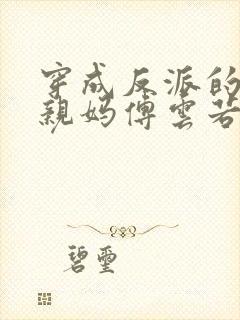 穿成反派的
親媽傅雲若
碧璽